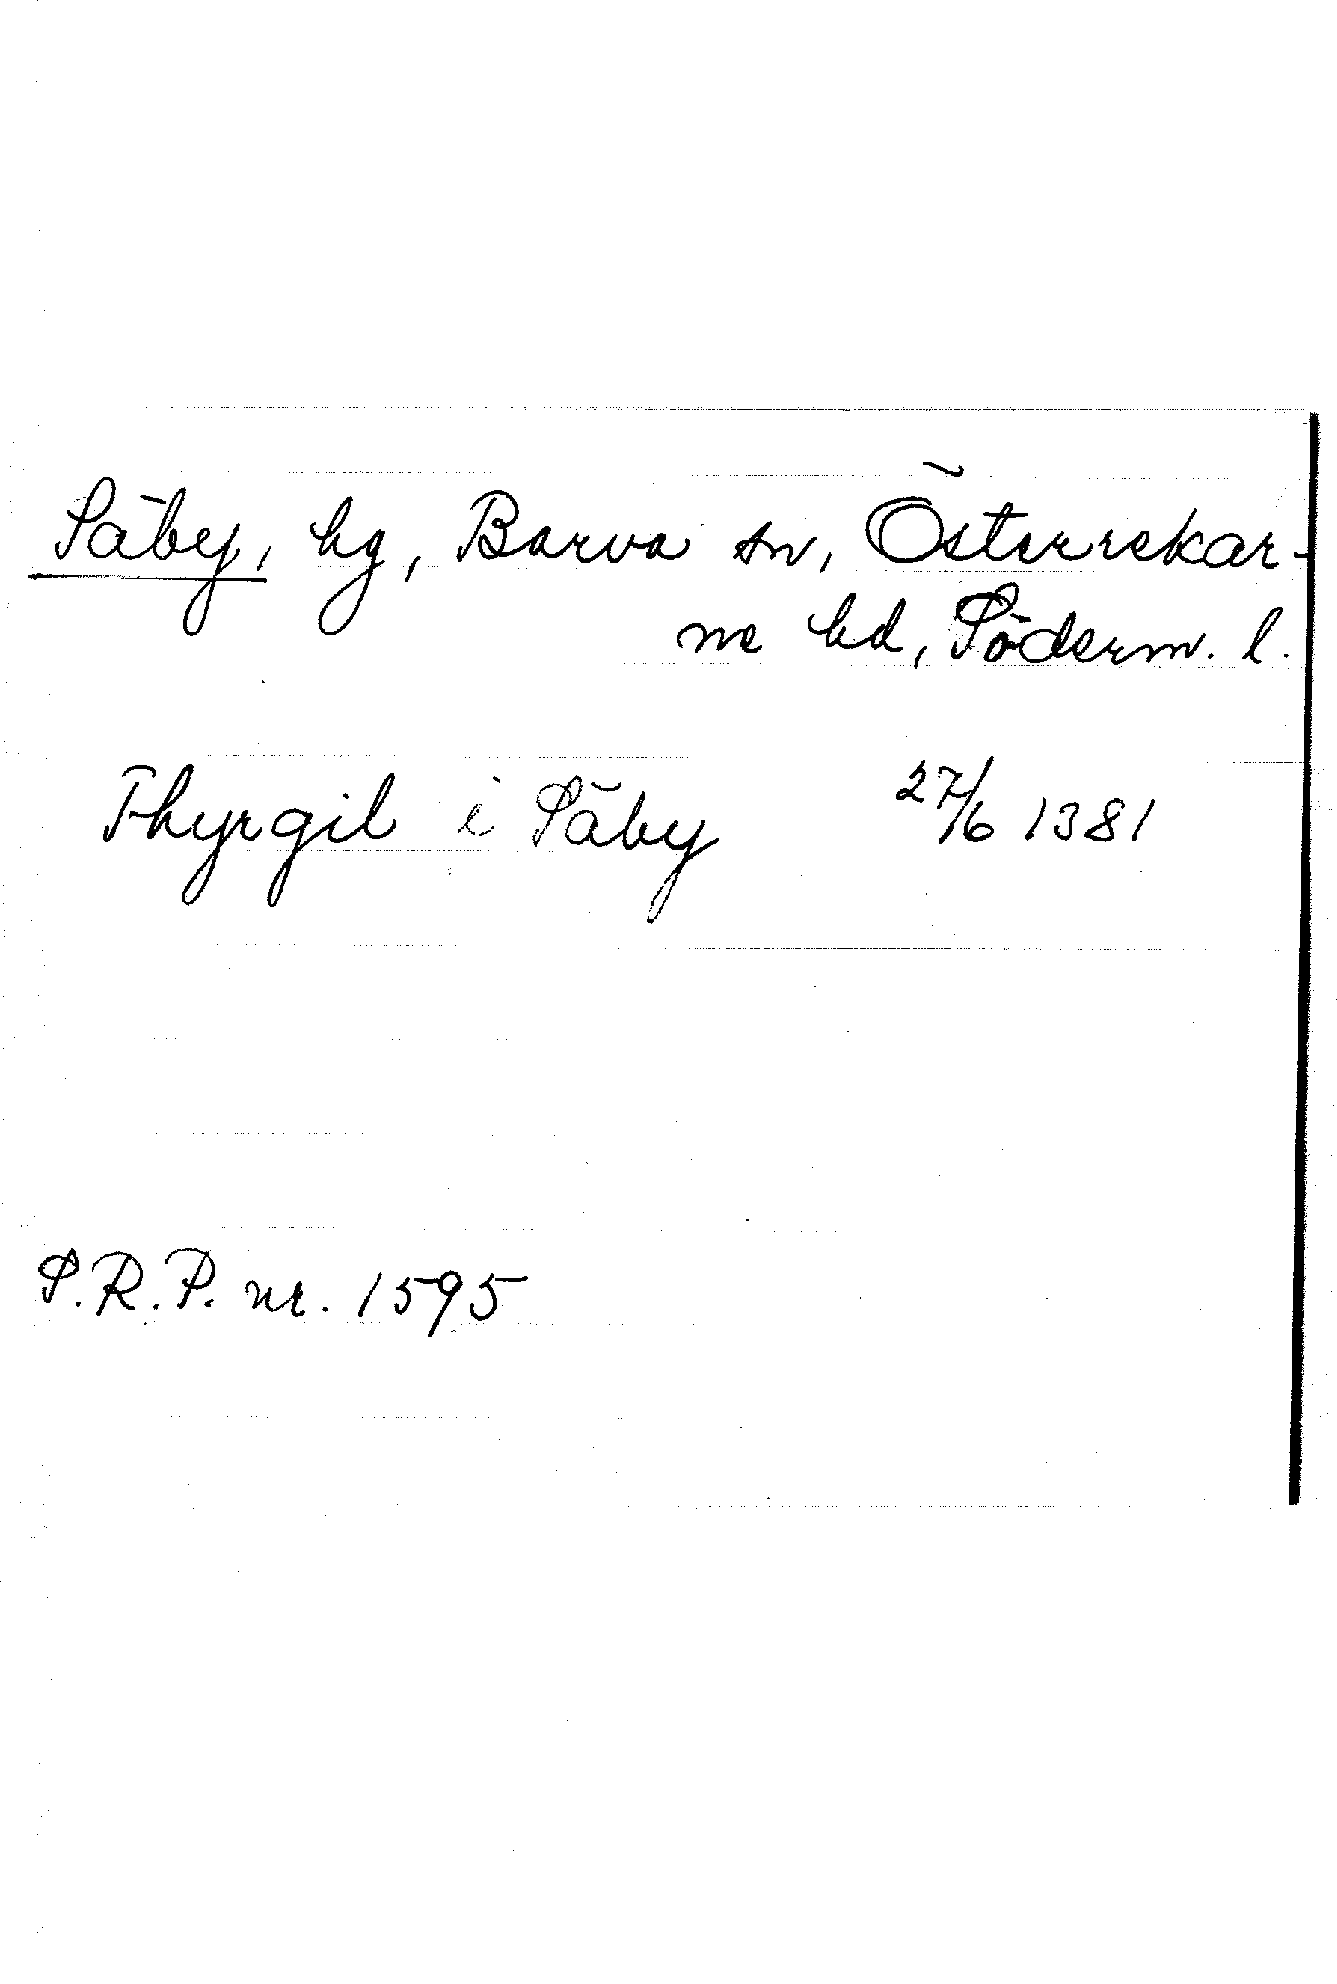 Säby, hg, Barva sn, Österrekar-
ne hd, Söderm. l.
Thyrgil i Säby 27/6 1381
S.R.P. nr. 1595